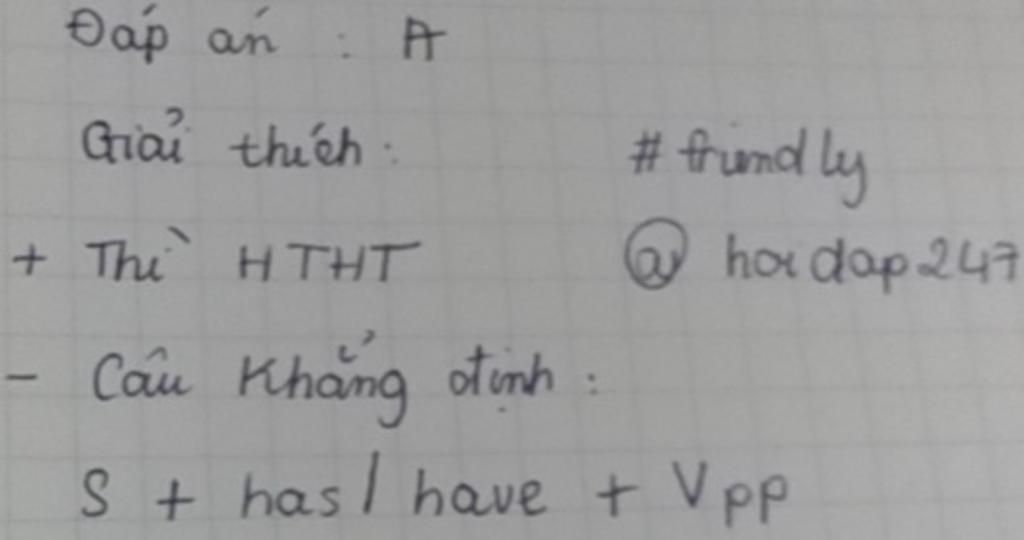 Đáp án : A
Giải thích : # friendly
+ Thì HTHT @ hoidap247
- Câu khẳng định :
S + has / have + Vpp